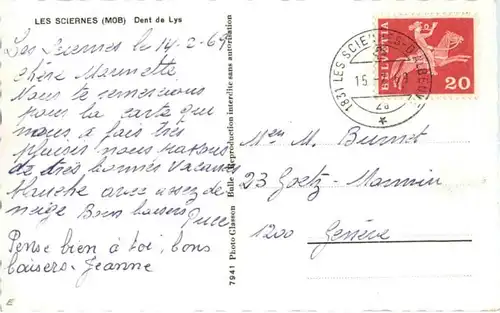 LES SCIERNES (MOB) Dent de Lys
Les Sciernes le 14-2-69
chère Mounette,
Nous te remercions
pour la carte que
nous a fais très
plaisir nous passons
de très bonnes vacances
blanche avec assez de
neige Bons baisers
Puce
Pense bien à toi, bons
baisers. Jeanne
7941 Photo Glasson Bulle Reproduction interdite sans autorisation
1831 LES SCIERNES-D'ALBEUVE
15
HELVETIA
20
M. Burnet
23 Goetz-Monnin
1200 Genève
E